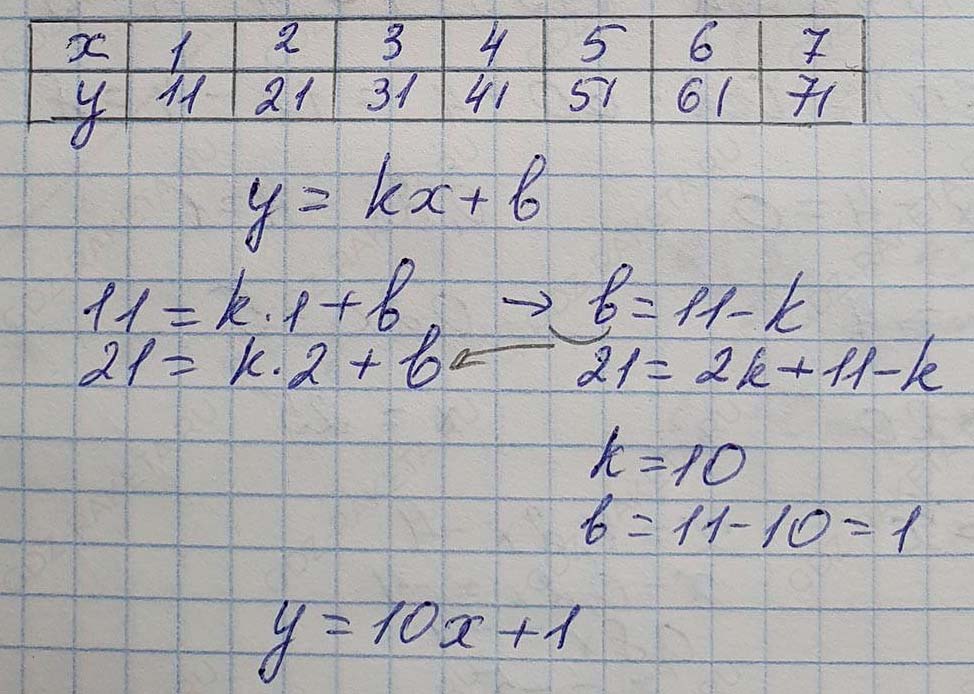 x 1 2 3 4 5 6 7
y 11 21 31 41 51 61 71
y = kx + b
11 = k·1 + b → b = 11 - k
21 = k·2 + b 21 = 2k + 11 - k
k = 10
b = 11 - 10 = 1
y = 10x + 1